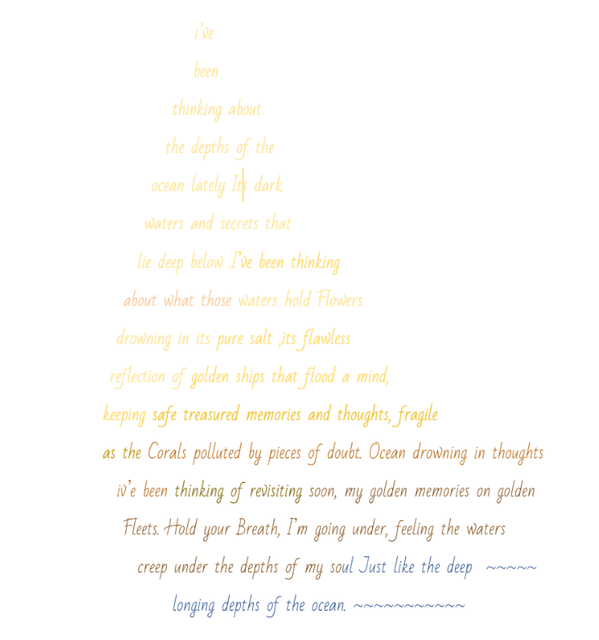 i've
been
thinking about
the depths of the
ocean lately Its dark
waters and secrets that
lie deep below I've been thinking
about what those waters hold Flowers
drowning in its pure salt ,its flawless
reflection of golden ships that flood a mind,
keeping safe treasured memories and thoughts, fragile
as the Corals polluted by pieces of doubt. Ocean drowning in thoughts
iv'e been thinking of revisiting soon, my golden memories on golden
Fleets. Hold your Breath, I'm going under, feeling the waters
creep under the depths of my soul Just like the deep ~~~~~
longing depths of the ocean. ~~~~~~~~~~~